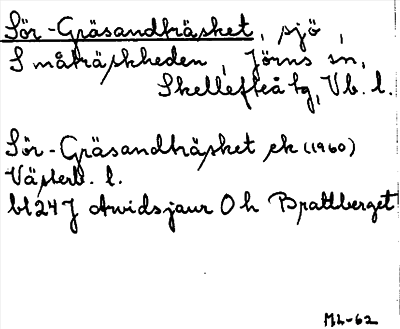 Sör-Gräsandträsket, sjö,
Småträskheden, Jörns sn,
Skellefteå tg, Vb. l.
Sör-Gräsandträsket ek (1960)
Västerb. l.
bl 24 J Arvidsjaur O h Brattberget
ML-62